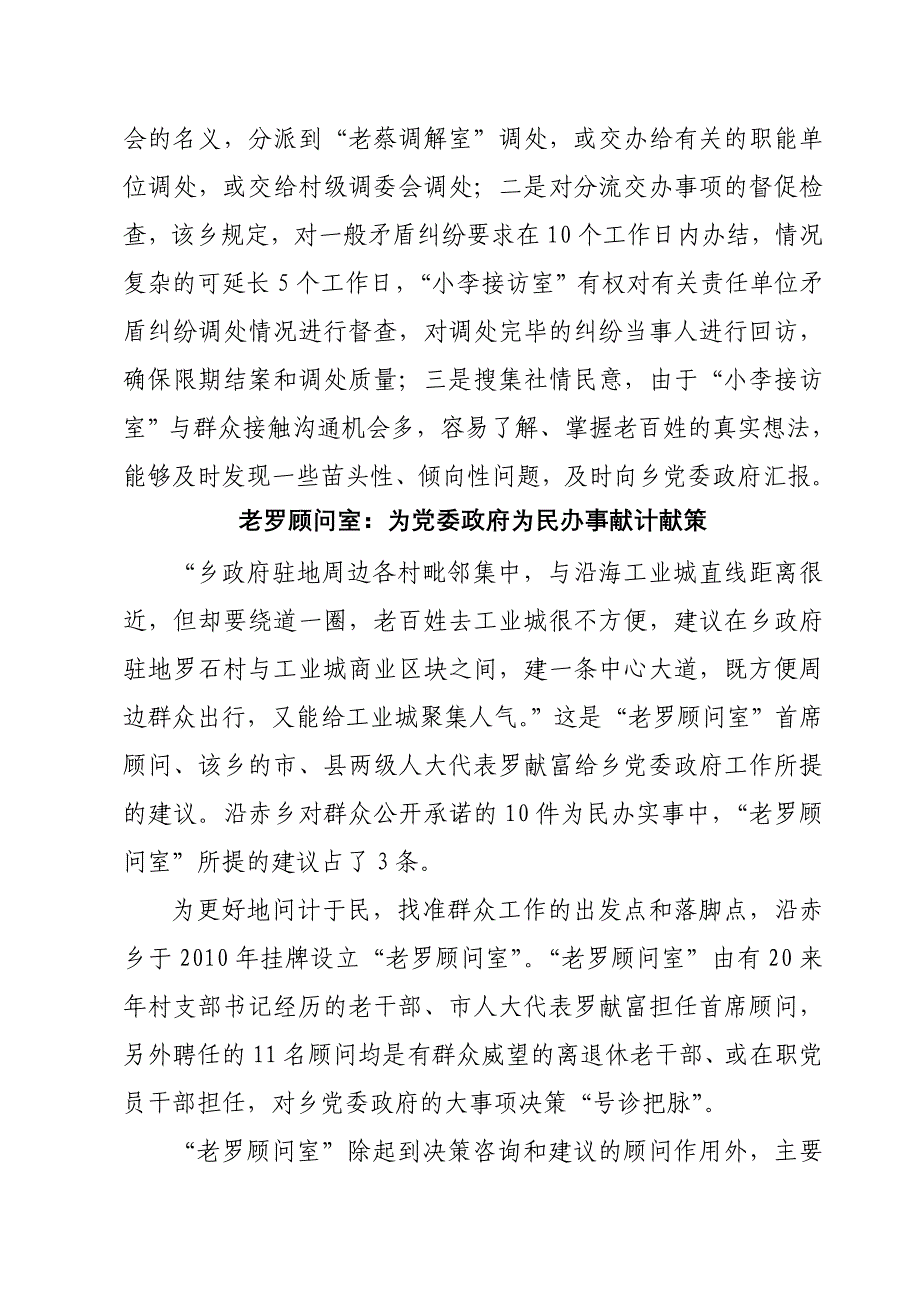 会的名义，分派到“老蔡调解室”调处，或交办给有关的职能单
位调处，或交给村级调委会调处；二是对分流交办事项的督促检
查，该乡规定，对一般矛盾纠纷要求在 10 个工作日内办结，情况
复杂的可延长 5 个工作日，“小李接访室”有权对有关责任单位矛
盾纠纷调处情况进行督查，对调处完毕的纠纷当事人进行回访，
确保限期结案和调处质量；三是搜集社情民意，由于“小李接访
室”与群众接触沟通机会多，容易了解、掌握老百姓的真实想法，
能够及时发现一些苗头性、倾向性问题，及时向乡党委政府汇报。
老罗顾问室：为党委政府为民办事献计献策
“乡政府驻地周边各村毗邻集中，与沿海工业城直线距离很
近，但却要绕道一圈，老百姓去工业城很不方便，建议在乡政府
驻地罗石村与工业城商业区块之间，建一条中心大道，既方便周
边群众出行，又能给工业城聚集人气。”这是“老罗顾问室”首席
顾问、该乡的市、县两级人大代表罗献富给乡党委政府工作所提
的建议。沿赤乡对群众公开承诺的 10 件为民办实事中，“老罗顾
问室”所提的建议占了 3 条。
为更好地问计于民，找准群众工作的出发点和落脚点，沿赤
乡于 2010 年挂牌设立“老罗顾问室”。“老罗顾问室”由有 20 来
年村支部书记经历的老干部、市人大代表罗献富担任首席顾问，
另外聘任的 11 名顾问均是有群众威望的离退休老干部、或在职党
员干部担任，对乡党委政府的大事项决策“号诊把脉”。
“老罗顾问室”除起到决策咨询和建议的顾问作用外，主要